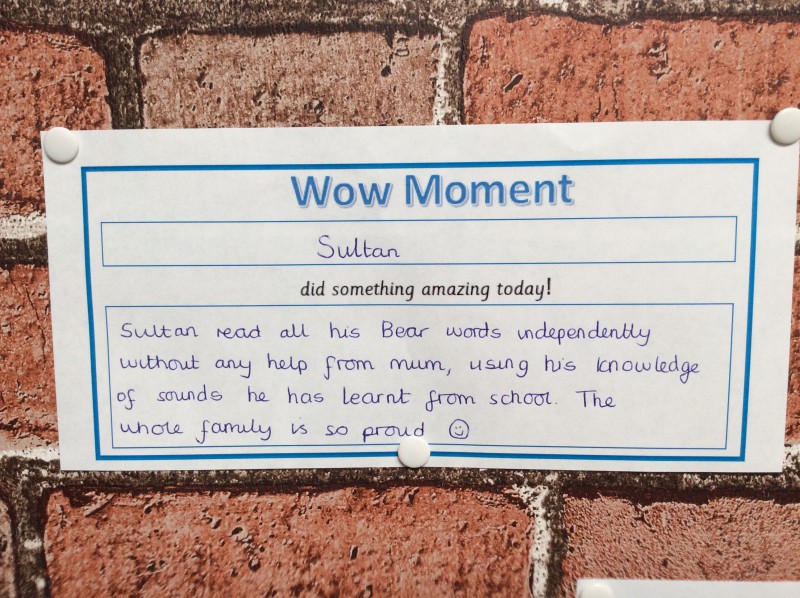 Wow Moment
Sultan
did something amazing today!
Sultan read all his Bear words independently
without any help from mum, using his knowledge
of sounds he has learnt from school. The
whole family is so proud ☺